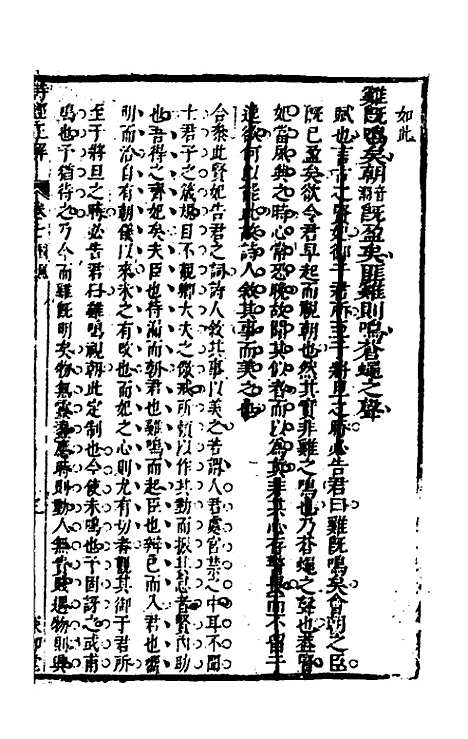 如此
雞既鳴矣朝音潮既盈矣匪雞則鳴蒼蠅之聲
賦也言古之賢妃御于君所至于將旦之時必告君曰雞既鳴矣會朝之臣
既已盈矣欲令君早起而視朝也然其實非雞之鳴也乃蒼蠅之聲也蓋賢
妃當夙興之時心常恐晚故聞其似者而以為真非其心存警畏而不留于
逸欲何以能此故詩人敘其事而美之也
合參此賢妃告君之詞詩人敘其事以美之若謂人君處官禁之中耳不聞
士君子之箴規目不觀卿大夫之儆戒所賴以作其勤而振其怠者賢內助
也吾得之齊妃矣夫臣也待漏而朝君也雞鳴而起臣也辨色而入君也
明而治自有朝儀以來未之有改也而妃之心則尤有切者觀其御于君所
至于將旦之時必告君曰雞鳴視朝此定制也令使未鳴也予固訝之或甫
鳴也予猶待之乃今而雞既明矣物無應時則動人無物則興